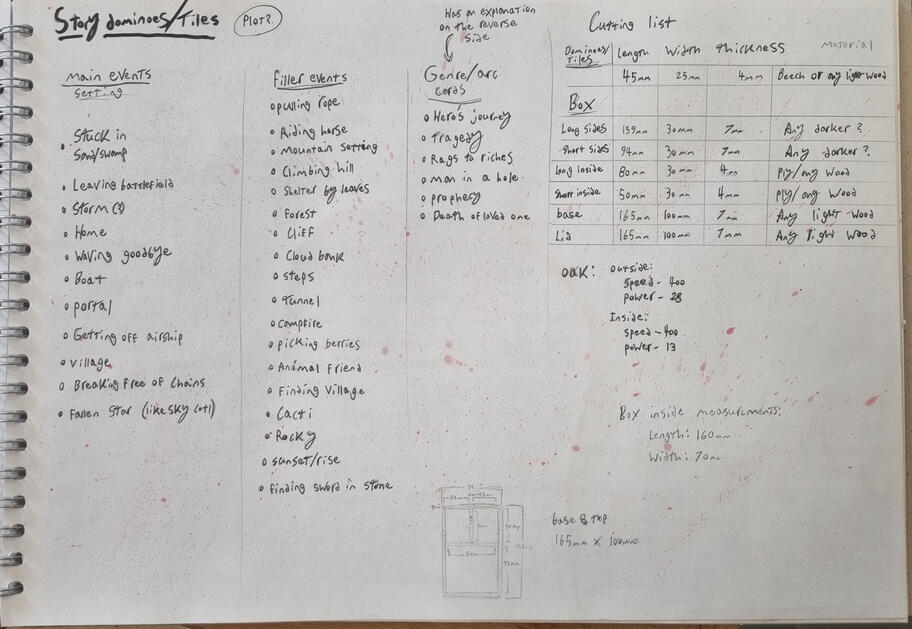 Story dominoes/Tiles
Plot?
Main events
Setting
Stuck in
Sand/swamp
Leaving battlefield
Storm (?)
Home
Waving goodbye
Boat
portal
Getting off airship
village
Breaking free of Chains
Fallen Star (like sky cotl)
Filler events
pulling rope
Riding horse
Mountain setting
Climbing hill
Shelter by leaves
Forest
Cliff
Cloud bank
Steps
Tunnel
Campfire
picking berries
Animal Friend
Finding Village
Cacti
Rocky
sunset/rise
finding sword in stone
Has an explanation
on the reverse
side
Genre/arc
cards
Hero's journey
Tragedy
Rags to riches
man in a hole
prophecy
Death of loved one
Cutting list
Dominoes/Tiles Length Width thickness Material
45mm 25mm 4mm Beech or any light wood
Box
Long sides 159mm 30mm 7mm Any darker?
Short sides 94mm 30mm 7mm Any darker?
Long inside 80mm 30mm 4mm Ply/any wood
Short inside 50mm 30mm 4mm Ply/any wood
base 165mm 100mm 7mm Any light wood
Lid 165mm 100mm 7mm Any light wood
oak: Outside:
speed - 400
power - 28
Inside:
speed - 400
power - 13
Box inside measurements:
Length: 160mm
Width: 70mm
base & top
165mm x 100mm